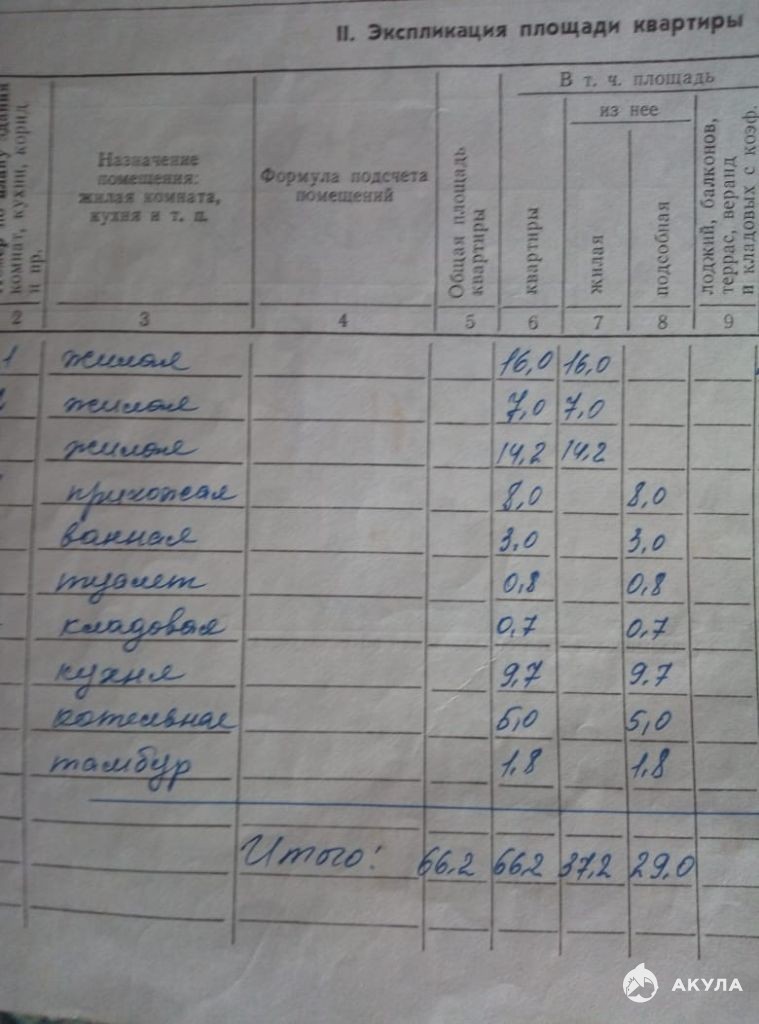 II. Экспликация площади квартиры
комнат, кухни, корид
и пр.
Назначение
помещения:
жилая комната,
кухня и т. п.
Формула подсчета
помещений
Общая площадь
квартиры
В т. ч. площадь
из нее
квартиры
жилая
подсобная
лоджий, балконов,
террас, веранд
и кладовых с коэф.
2 3 4 5 6 7 8 9
1 жилая 16,0 16,0
жилая 7,0 7,0
жилая 14,2 14,2
прихожая 8,0 8,0
ванная 3,0 3,0
туалет 0,8 0,8
кладовая 0,7 0,7
кухня 9,7 9,7
котельная 5,0 5,0
тамбур 1,8 1,8
Итого: 66,2 66,2 37,2 29,0
АКУЛА